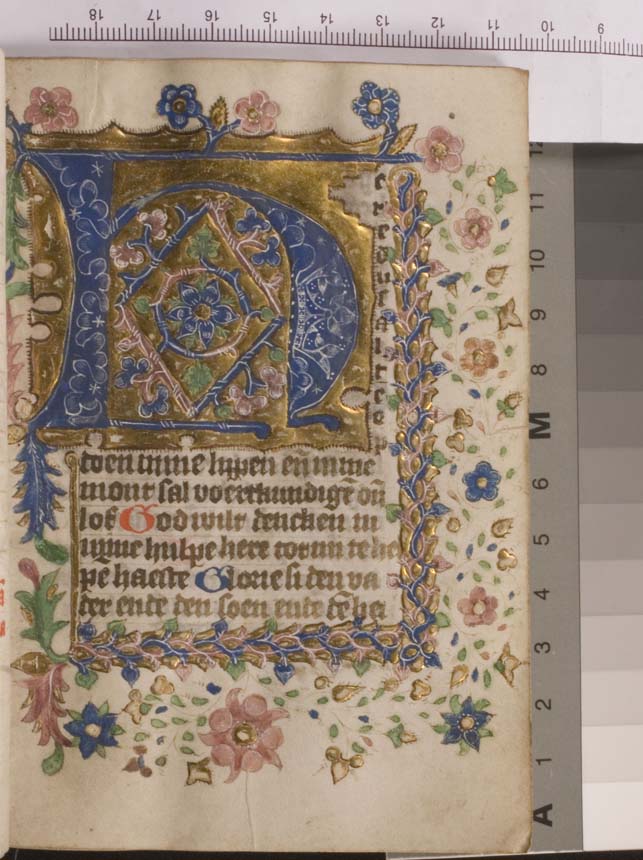 18 17 16 15 14 13 12 11 10 9
H
doen mine lippen eñ mine
mont sal voertkundigē
lof God wilt dencken in
mijne hulpe here
pē haeste Glorie si den va
der ende den soen ende dē hei
12
11
10
9
8
M
6
5
4
3
2
1
A